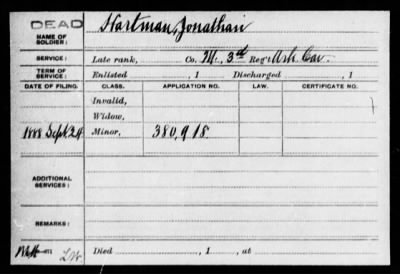 DEAD
NAME OF SOLDIER: Hartman, Jonathan
SERVICE: Late rank, Co. M, 3rd Reg't Ark. Cav.
TERM OF SERVICE: Enlisted , 1 Discharged , 1
DATE OF FILING. CLASS. APPLICATION NO. LAW. CERTIFICATE NO.
Invalid,
Widow,
1888 Sept 24 Minor, 380,918
ADDITIONAL SERVICES:
REMARKS:
Died , 1 , at